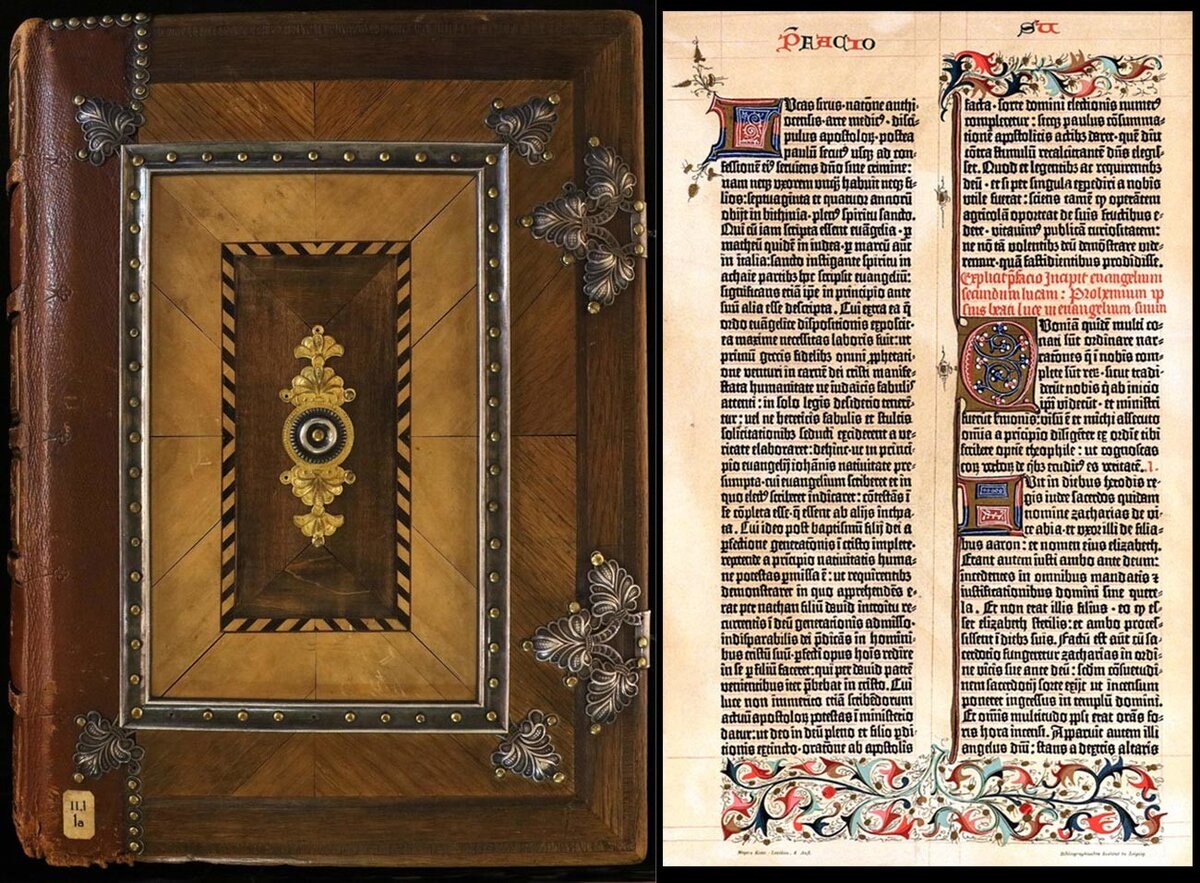 II,1
1a
P̄FACIO
Lucas sirus· natōne anthi·
ocensis· arte medic⁹· disci·
pulus apostoloꝝ· postea
paulū secut⁹ usqꝫ ad con·
fessionē eī⁹ serviens dn̄o sine crimine:
nam neqꝫ uxorem unqꝫ habuit neqꝫ fi·
lios: septuaginta et quatuor annorū
obijt in bithinia· plen⁹ spiritu sancto.
Qui cū iam scripta essent euāgelia· ꝑ
matheū quidē in iudea· ꝑ marcū aut̄
in italia: sancto instigante spiritu in
achaie partibꝫ hoc scripsit euangeliū:
significans etiā ip̄e in principio ante
suū alia esse descripta. Cui extra ea q̄
ordo euāgelice dispositionis exposcit·
ea maxime necessitas laboris fuit: ut
primū grecis fidelibꝫ omni ꝓphetati·
one venturi in carnē dei cristi manife·
stata humanitate ne iudaicis fabulis
attenti: in solo legis desiderio tenerē·
tur: vel ne hereticis fabulis et stultis
solicitationibꝫ seducti exciderent a ve·
ritate elaboraret: dehinc· ut in princi·
pio euangelij iohānis nativitate pre·
sumpta· cui euangelium scriberet et in
quo elect⁹ scriberet indicaret: cōtestās ī
se cōpleta esse· q̄ essent ab alijs incho·
ata. Cui ideo post baptismū filij dei a
ꝑfectione generationis ī cristo implete·
repetende a principio nativitatis huma·
ne potestas ꝑmissa ē: ut requirentibꝫ
demonstraret in quo apprehendēs e·
rat per nathan filiū david introitu re·
currentis ī deū generationis admisso·
indisparabilis dei p̄dicās in homini·
bus cristū suū· ꝑfecti opus hoīs redire
in se ꝑ filiū faceret: qui per david patrē
venientibus iter p̄bebat in cristo. Cui
luce non immerito etiā scribēdorum
actuū apostoloꝝ potestas ī ministerio
datur: ut deo in deū pleno et filio ꝑdi·
tionis extincto· oratione ab apostolis
SU
facta· sorte domini electionis numer⁹
compleretur: sicqꝫ paulus cōsumma·
tionē apostolicis actibꝫ daret· quē diu
cōtra stimulū recalcitrantē dn̄s elegis·
set. Quod et legentibꝫ ac requirentibꝫ
deū· et si per singula expediri a nobis
utile fuerat: sciens tamē q̄ operātem
agricolā oporteat de suis fructibus e·
dere· vitavim⁹ publicā curiositatem:
ne nō tā volentibꝫ deū demōstrare vide·
remur· quā fastidientibus prodidisse.
Explicit p̄facio Incipit euangelium
secundum lucam: Prohemium ip·
sius beati luce in euangelium suum
Quoniā quidē multi co·
nati sūt ordinare nar·
rationes q̄ ī nobis com·
plete sūt reꝝ· sicut tradi·
derūt nobis q̄ ab inicio
ip̄i viderūt· et ministri
fuerūt s̄monis: visū ē et michi assecuto
omīa a principio diligēter ex ordīe tibi
scribere optīe theophile: ut cognoscas
eoꝝ verboꝝ de q̄bꝫ erudit⁹ es veritatē. I.
Fuit in diebus herodis re·
gis iude sacerdos quidam
nomine zacharias de vi·
ce abia· et uxor illi de filia·
bus aaron: et nomen eius elizabeth.
Erant autem iusti ambo ante deum:
incedentes in omnibus mandatis ⁊
iustificationibus domini sine quere·
la. Et non erat illis filius· eo q̄ es·
set elizabeth sterilis: et ambo proces·
sissent ī diebꝫ suis. Factū est aūt cū sa·
cerdotio fungeretur zacharias in ordi·
ne vicis sue ante deū: sc̄dm cōsuetudi·
nem sacerdotij sorte exijt ut incensum
poneret ingressus in templū domini.
Et om̄is multitudo pp̄li erat orās fo·
ris hora incensi. Apparuit autem illi
angelus dn̄i: stans a dextris altaris
Meyers Konv.-Lexikon, 6. Aufl.
Bibliographisches Institut in Leipzig